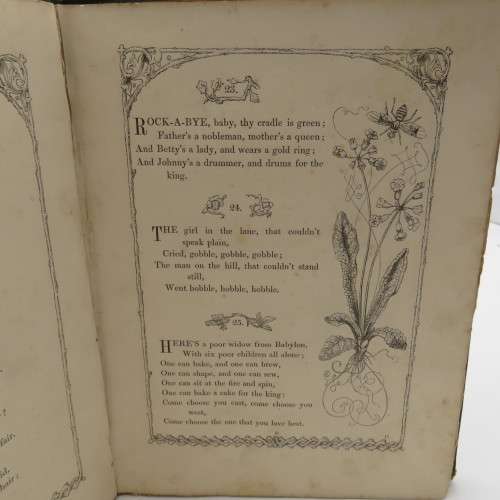 23.
ROCK-A-BYE, baby, thy cradle is green;
Father's a nobleman, mother's a queen;
And Betty's a lady, and wears a gold ring;
And Johnny's a drummer, and drums for the
king.
24.
THE girl in the lane, that couldn't
speak plain,
Cried, gobble, gobble, gobble;
The man on the hill, that couldn't stand
still,
Went hobble, hobble, hobble.
25.
HERE'S a poor widow from Babylon,
With six poor children all alone;
One can bake, and one can brew,
One can shape, and one can sew,
One can sit at the fire and spin,
One can bake a cake for the king:
Come choose you east, come choose you
west,
Come choose the one that you love best.